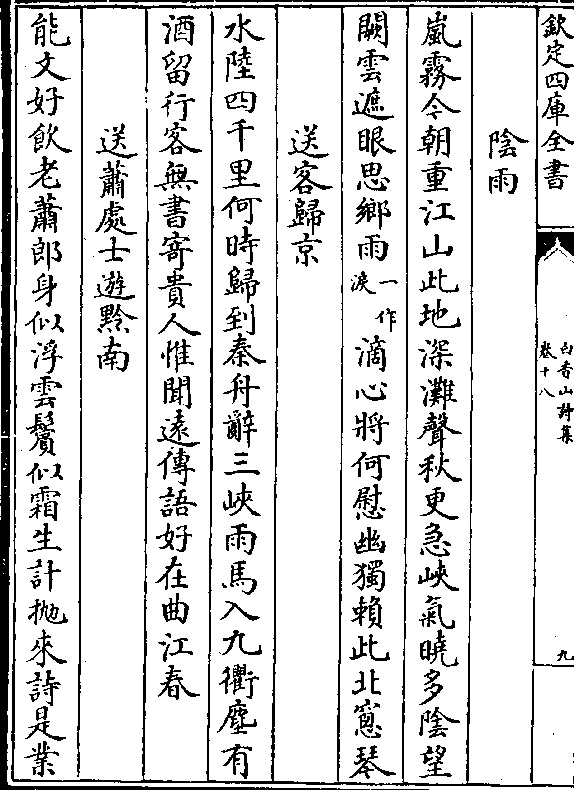 欽定四庫全書
白香山詩集
卷十八
九
陰雨
嵐霧今朝重江山此地深灘聲秋更急峽氣曉多陰望
闕雲遮眼思鄉雨一作淚滴心將何慰幽獨賴此北窻琴
送客歸京
水陸四千里何時歸到秦舟辭三峽雨馬入九衢塵有
酒留行客無書寄貴人惟聞遠傳語好在曲江春
送蕭處士遊黔南
能文好飲老蕭郎身似浮雲鬢似霜生計抛來詩是業